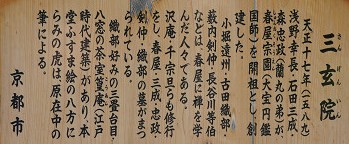 三玄院
さんげんいん
天正十七年(一五八九)
浅野幸長・石田三成・
森忠政(蘭丸の弟)が、
春屋宗園(大宝円鑑
国師)を開祖とし創
建した。
小堀遠州・古田織部・
薮内剣仲・長谷川等伯
などは春屋に禅を学
んだ人々である。
沢庵・千宗旦らも修行
をし、春屋・三成・忠政・
剣仲・織部の墓がまつ
られている。
織部好みの三畳台目・
窓の茶室篁庵(江戸
時代建築)があり、本
堂ふすま絵の八方に
らみの虎は原在中の
筆による。
京都市